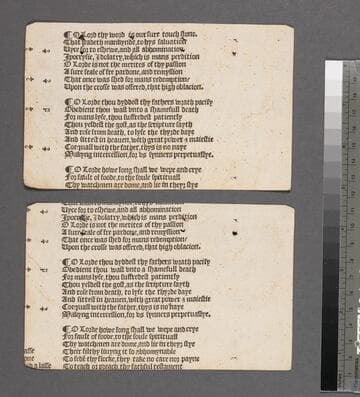 ¶ O Lord thy word is our sure touch stone.
That leadeth mankynde, to hys saluation
Vyce for to eshewe, and all abhomination
Ypocrysie, Ydolatry, which is mans perdition
O Lorde is not the merites of thy passion
A sure seale of fre pardone, and remyssion
That once was shed for mans redemption/
Upon the crosse was offered, that high oblacion.
¶ O Lorde thou dyddest thy fathers wrath pacify
Obedient thou wast vnto a shamefull death
For mans lyfe, thou sufferedst patiently
Thou yeldest the gost, as the scripture sayth
And rose from death, to lyfe the thyrde daye
And sittest in heauen, with great power & maiestie
Coequall with the father, thys is no naye
Makyng intercession, for vs synners perpetuallye.
¶ O Lorde howe long shall we wepe and crye
For faulte of foode, to the soule spirituall
Thy watchmen are dome, and lie in theyr stye
Vyce for to eshewe, and all abhomination
Ypocrysie, Ydolatry, which is mans perdition
O Lorde is not the merites of thy passion
A sure seale of fre pardone, and remyssion
That once was shed for mans redemption/
Upon the crosse was offered, that high oblacion.
¶ O Lorde thou dyddest thy fathers wrath pacify
Obedient thou wast vnto a shamefull death
For mans lyfe, thou sufferedst patiently
Thou yeldest the gost, as the scripture sayth
And rose from death, to lyfe the thyrde daye
And sittest in heauen, with great power & maiestie
Coequall with the father, thys is no naye
Makyng intercession, for vs synners perpetuallye.
¶ O Lorde howe long shall we wepe and crye
For faulte of foode, to the soule spirituall
Thy watchmen are dome, and lie in theyr stye
Their filthy lyuyng is so abhomynable
To fede thy flocke, they take no care nor payne
To teach or preach, thy faithful testament